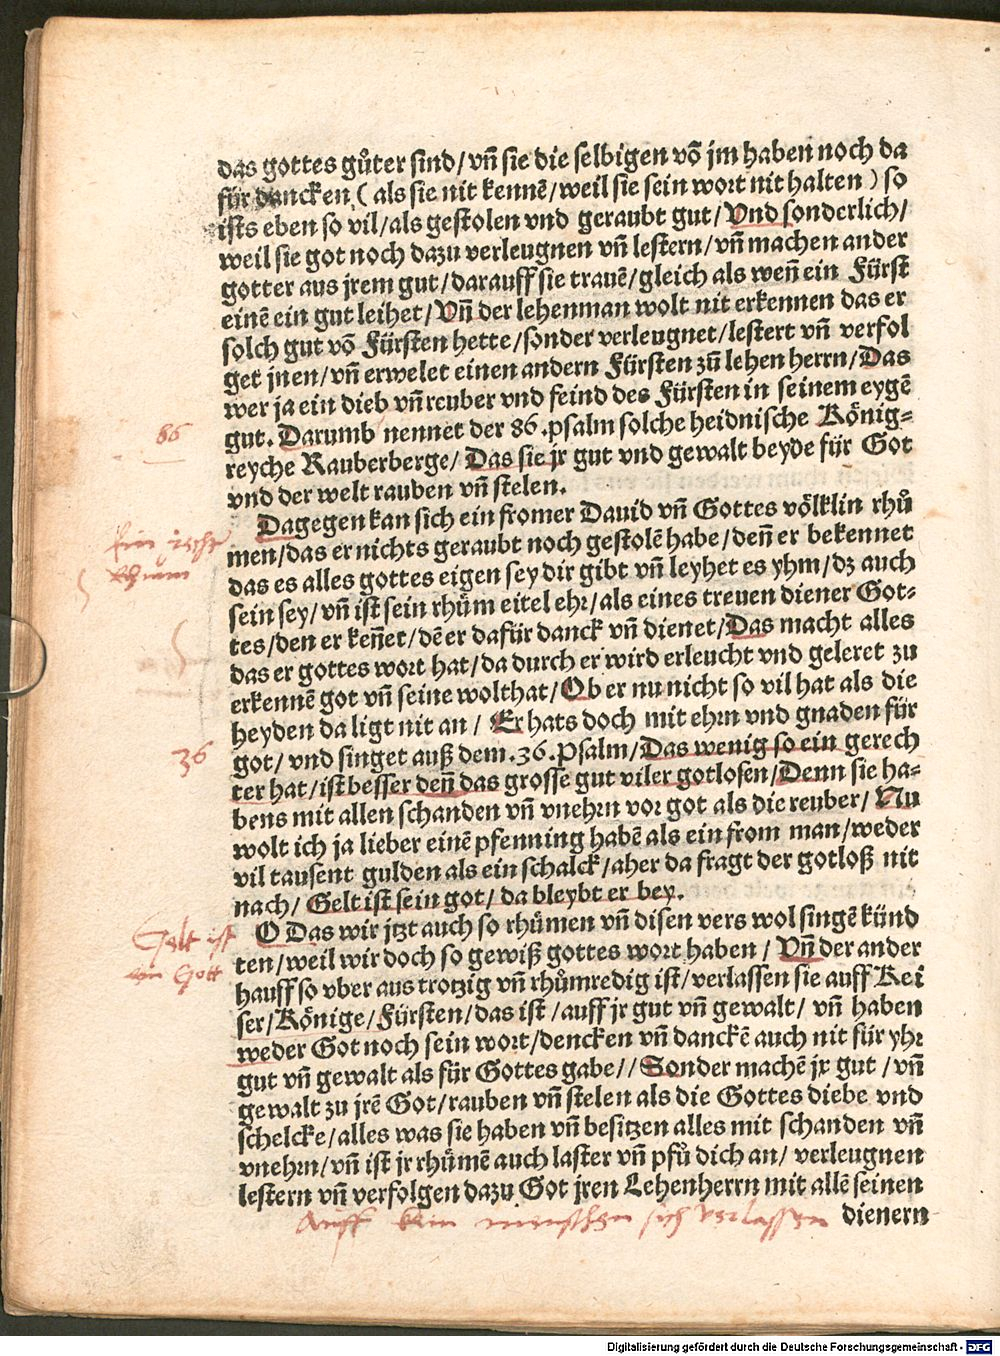 das gottes gůter sind/ vñ sie die selbigen võ jm haben noch da
für dancken ( als sie nit kennẽ/ weil sie sein wort nit halten ) so
ists eben so vil/ als gestolen vnd geraubt gut/ Vnd sonderlich/
weil sie got noch dazu verleugnen vñ lestern/ vñ machen ander
gotter aus jrem gut/ darauff sie trauẽ/ gleich als weñ ein Fürst
einẽ ein gut leihet/ Vñ der lehenman wolt nit erkennen das er
solch gut võ Fürsten hette/ sonder verleugnet/ lestert vñ verfol
get jnen/ vñ erwelet einen andern Fürsten zů lehen herrn/ Das
wer ja ein dieb vñ reuber vnd feind des Fürsten in seinem eygẽ
gut. Darumb nennet der 86. psalm solche heidnische König=
86
reyche Rauberberge/ Das sie jr gut vnd gewalt beyde für Got
vnd der welt rauben vñ stelen.
Dagegen kan sich ein fromer Dauid vñ Gottes völklin rhů
men/ das er nichts geraubt noch gestolẽ habe/ deñ er bekennet
das es alles gottes eigen sey dir gibt vñ leyhet es yhm/ dz auch
sein sey/ vñ ist sein rhům eitel ehr/ als eines treuen diener Got=
tes/ den er keñet/ dẽ er dafür danck vñ dienet/ Das macht alles
das er gottes wort hat/ da durch er wird erleucht vnd geleret zu
erkennẽ got vñ seine wolthat/ Ob er nu nicht so vil hat als die
heyden da ligt nit an/ Er hats doch mit ehrn vnd gnaden für
got/ vnd singet auß dem .36. Psalm/ Das wenig so ein gerech
36
ter hat/ ist besser deñ das grosse gut viler gotlosen/ Denn sie ha=
bens mit allen schanden vñ vnehrn vor got als die reuber/ Nu
wolt ich ja lieber einẽ pfenning habẽ als ein from man/ weder
vil tausent gulden als ein schalck/ aher da fragt der gotloß nit
nach/ Gelt ist sein got/ da bleybt er bey.
O Das wir jtzt auch so rhůmen vñ disen vers wol singẽ künd
Gelt ist
ein Gott
ten/ weil wir doch so gewiß gottes wort haben/ Vñ der ander
hauff so vber aus trotzig vñ rhůmredig ist/ verlassen sie auff Kei
ser/ Könige/ Fürsten/ das ist/ auff jr gut vñ gewalt/ vñ haben
weder Got noch sein wort/ dencken vñ danckẽ auch nit für yhr
gut vñ gewalt als für Gottes gabe// Sonder machẽ jr gut/ vñ
gewalt zu jrẽ Got/ rauben vñ stelen als die Gottes diebe vnd
schelcke/ alles was sie haben vñ besitzen alles mit schanden vñ
vnehrn/ vñ ist jr rhůmẽ auch laster vñ pfů dich an/ verleugnen
lestern vñ verfolgen dazu Got jren Lehenherrn mit allẽ seinen
dienern
Auff kein menschen sich verlassen
Digitalisierung gefördert durch die Deutsche Forschungsgemeinschaft - DFG